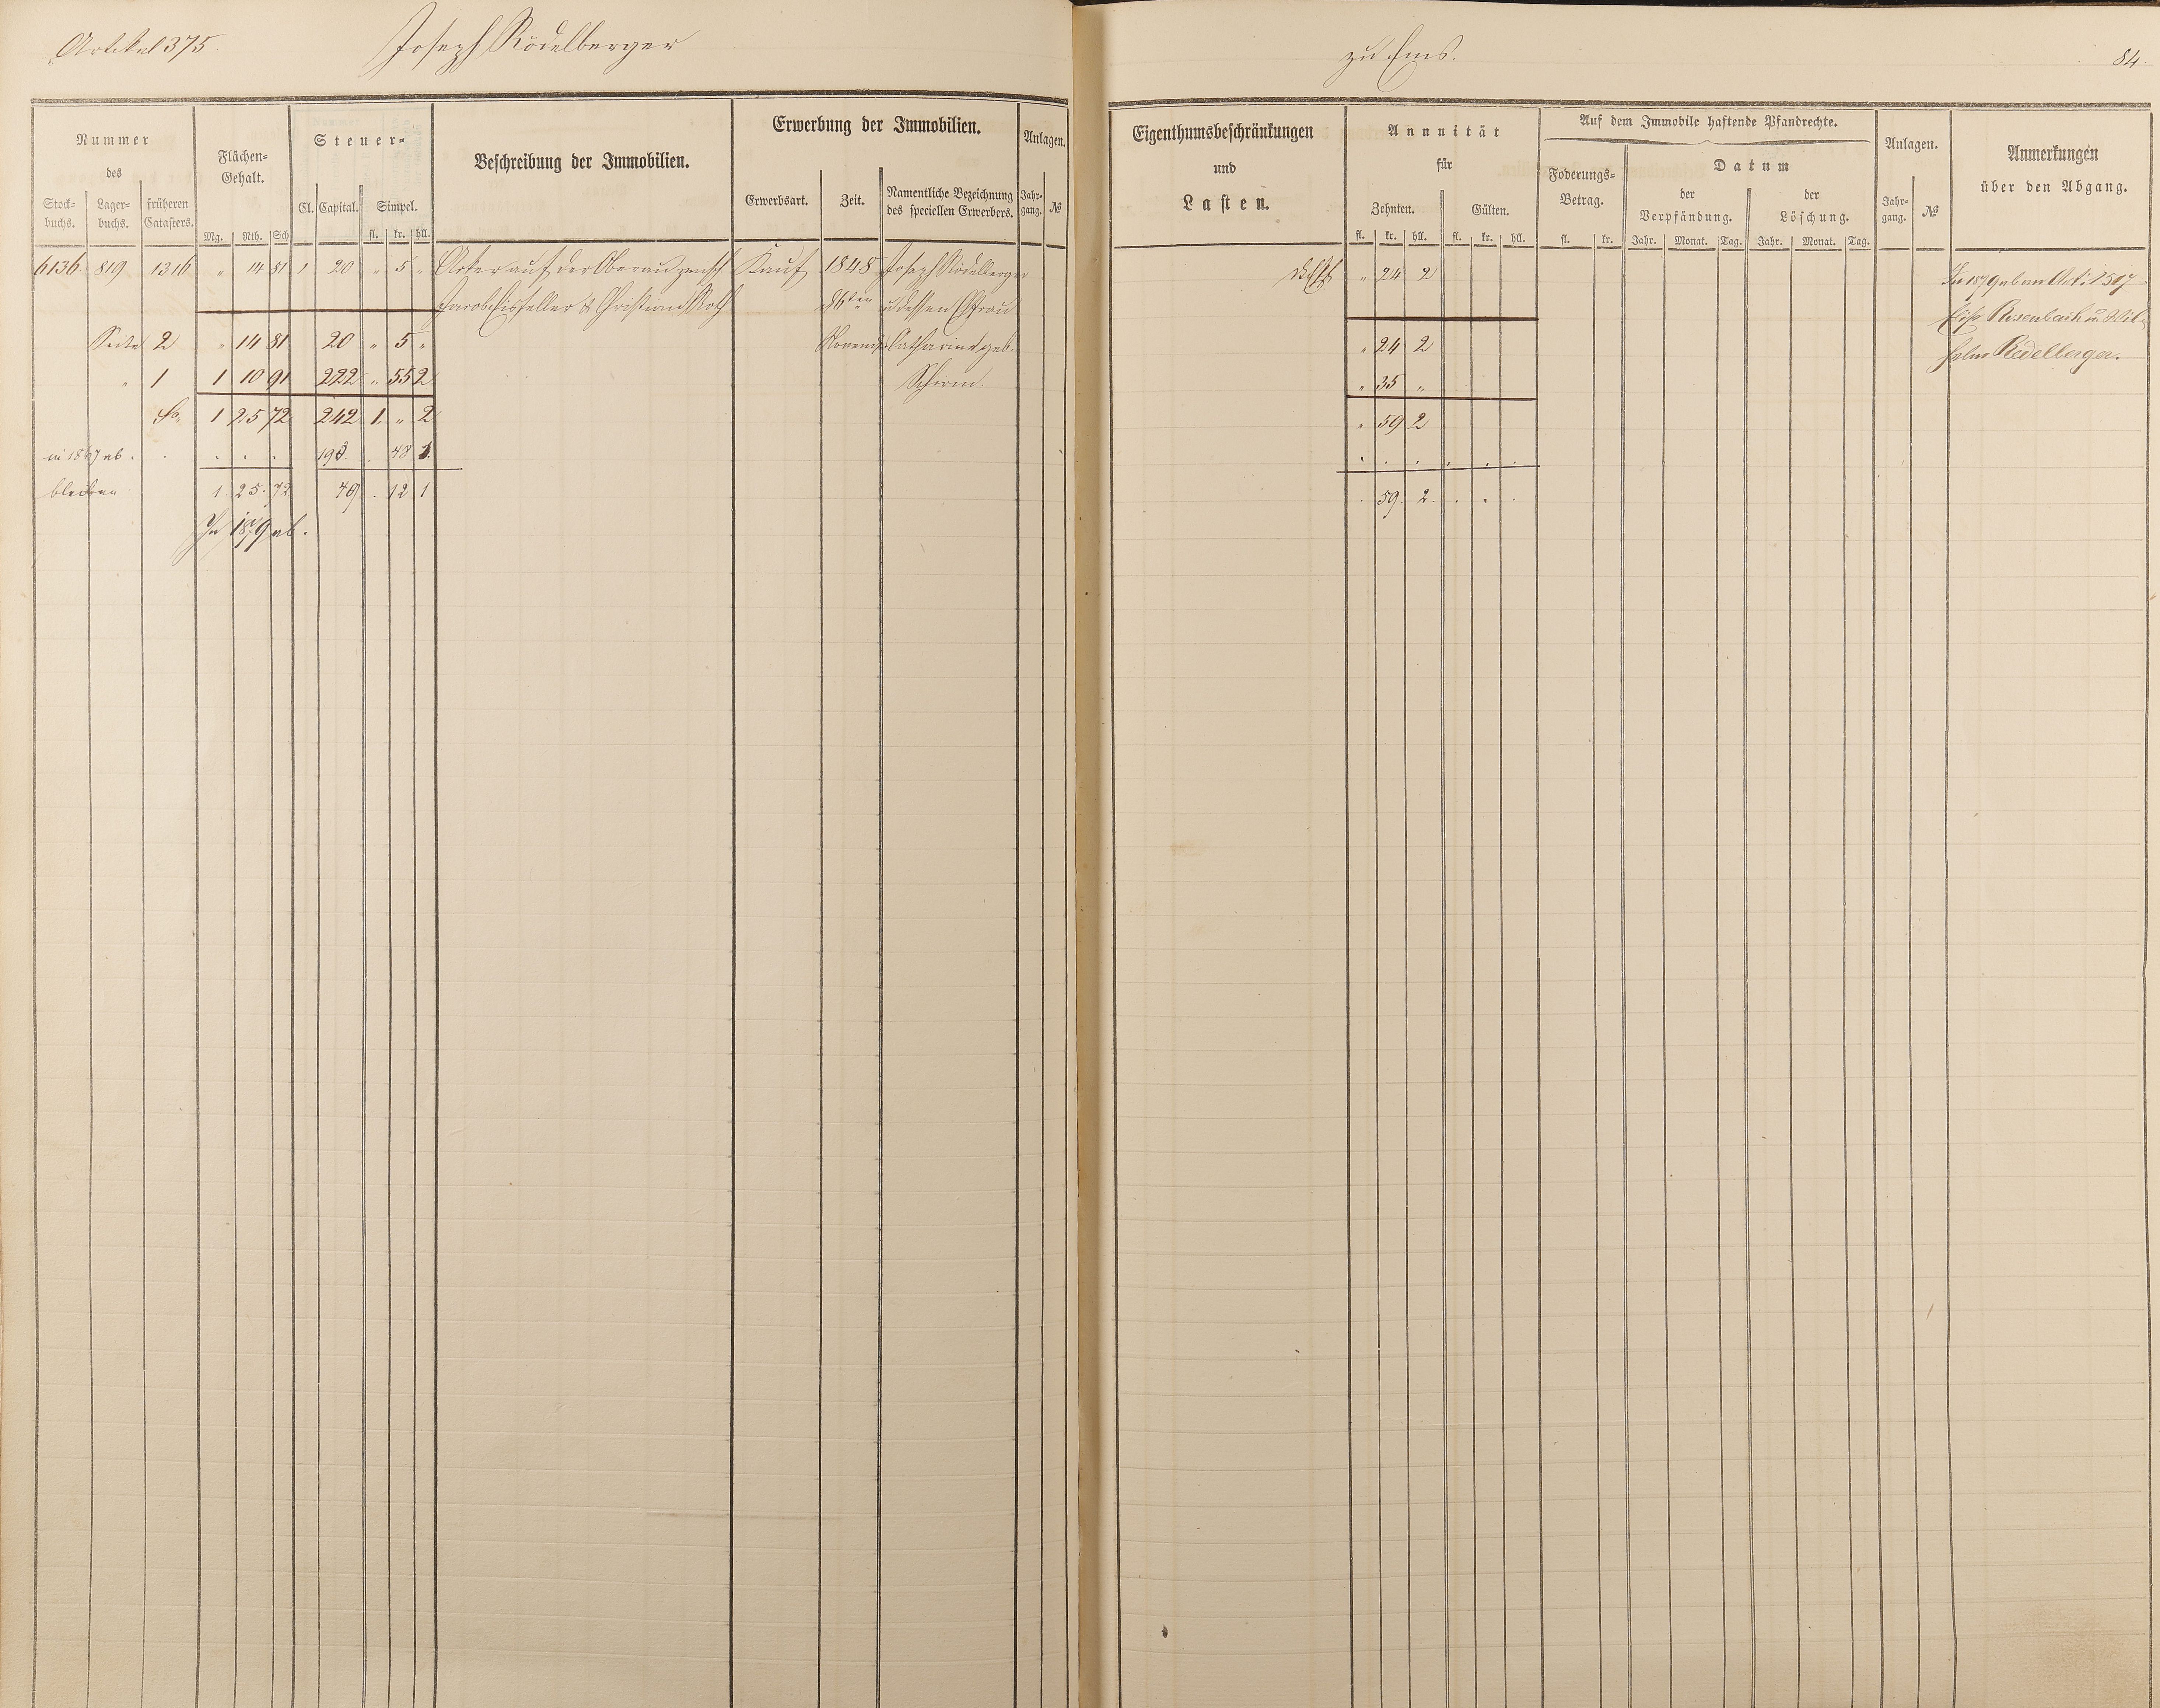 Artikel 375 Joseph Rödelberger zu Ems. 84.
Nummer des
Stock-buchs. Lager-buchs. früheren Catasters.
Flächen-Gehalt.
Mg. Rth. Sch
Steuer-
Cl. Capital. Simpel.
fl. kr. hll.
Beschreibung der Immobilien.
Erwerbung der Immobilien.
Erwerbsart. Zeit. Namentliche Bezeichnung des speciellen Erwerbers.
Anlagen.
Jahr-gang. №
Eigenthumsbeschränkungen
und
Lasten.
Annuität
für
Zehnten. Gülten.
fl. kr. hll. fl. kr. hll.
Auf dem Immobile haftende Pfandrechte.
Foderungs-Betrag.
fl. kr.
Datum
der Verpfändung. der Löschung.
Jahr. Monat. Tag. Jahr. Monat. Tag.
Anlagen.
Jahr-gang. №
Anmerkungen
über den Abgang.
6136 819 1316 " 14 81 1 20 " 5 " Acker auf der Oberau zwisch Kauf 1848 Joseph Rödelberger " 24 2 In 1879 ab an Art:
Jacob Eisfeller & Christian Roth u dessen Ehefrau Rosenbach u. Wil-
Seite 2 " 14 81 20 " 5 " Novemb. Catharine geb. " 24 2 helm Rödelberger.
" 1 1 10 91 222 " 55 2 " 35 "
Sa. 1 25 72 242 1 " 2 " 59 2
in 1867 ab . . . . 193 . 48 1
bleiben 1. 25. 72 49 . 12 1 . 59. 2 . . .
In 1879 ab.